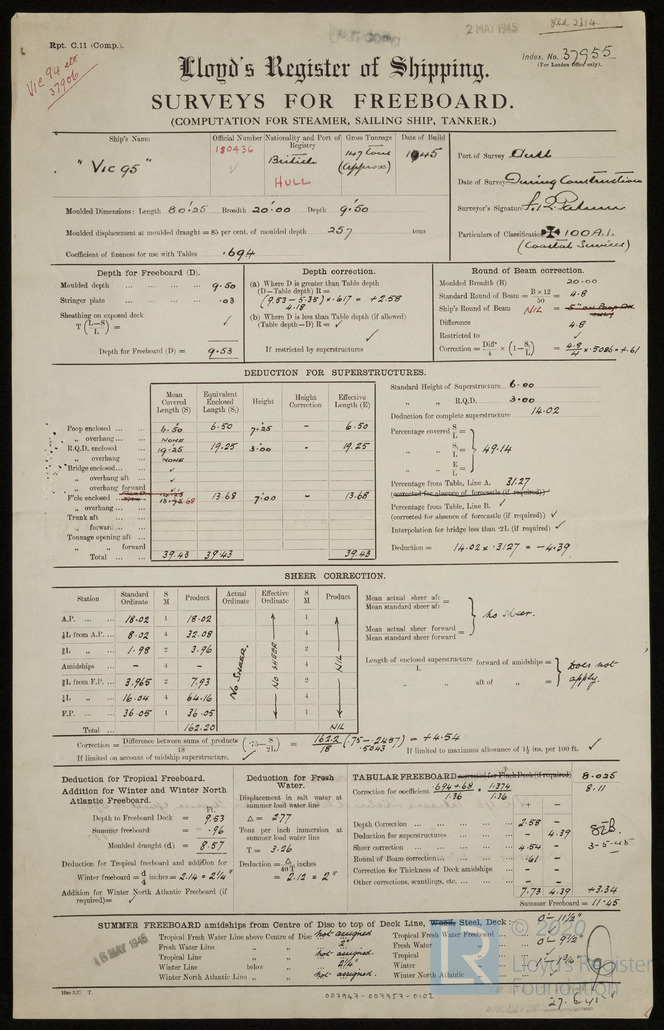 Rpt. C.11 (Comp.).
2 MAY 1945
Vic 94 etc
37906
Index. No. 37955
(For London Office only).
Lloyd's Register of Shipping.
SURVEYS FOR FREEBOARD.
(COMPUTATION FOR STEAMER, SAILING SHIP, TANKER.)
Ship's Name Official Number Nationality and Port of Registry Gross Tonnage Date of Build
"VIC 95" 180436 British HULL 147 tons (approx) 1945
Port of Survey Hull
Date of Survey During Construction
Surveyor's Signature
Particulars of Classification 100A.1. (Coastal Services)
Moulded Dimensions: Length 80.25 Breadth 20.00 Depth 9.50
Moulded displacement at moulded draught = 85 per cent. of moulded depth 257 tons
Coefficient of fineness for use with Tables .694
Depth for Freeboard (D).
Moulded depth ... 9.50
Stringer plate ... .03
Sheathing on exposed deck
T (L−S/L) = ✓
Depth for Freeboard (D) = 9.53
Depth correction.
(a) Where D is greater than Table depth
(D−Table depth) R =
(9.53 − 5.35) × .617 = +2.58
4.18
(b) Where D is less than Table depth (if allowed)
(Table depth−D) R = ✓
If restricted by superstructures
Round of Beam correction.
Moulded Breadth (B) 20.00
Standard Round of Beam = B×12/50 = 4.8
Ship's Round of Beam = NIL
Difference 4.8
Restricted to ✓
Correction = Diff/4 × (1−S₁/L) = 4.8/4 × .5086 = +.61
DEDUCTION FOR SUPERSTRUCTURES.
Mean Covered Length (S) Equivalent Enclosed Length (S₁) Height Height Correction Effective Length (E)
Poop enclosed ... 6.50 6.50 7.25 – 6.50
„ overhang ... NONE
R.Q.D. enclosed 19.25 19.25 3.00 – 19.25
„ overhang NONE
Bridge enclosed... ✓
„ overhang aft ✓
„ overhang forward ✓
F'cle enclosed ... 13.68 13.68 7.00 – 13.68
„ overhang ...
Trunk aft ...
„ forward ...
Tonnage opening aft ...
„ „ forward
Total ... 39.43 39.43 39.43
Standard Height of Superstructure 6.00
„ „ R.Q.D. 3.00
Deduction for complete superstructure 14.02
Percentage covered S/L =
„ „ S₁/L = 49.14
„ „ E/L =
Percentage from Table, Line A. 31.27
(corrected for absence of forecastle (if required))
Percentage from Table, Line B. ✓
(corrected for absence of forecastle (if required)) ✓
Interpolation for bridge less than .2L (if required) ✓
Deduction = 14.02 × .3127 = −4.39
SHEER CORRECTION.
Station Standard Ordinate S M Product Actual Ordinate Effective Ordinate S M Product
A.P. ... 18.02 1 18.02 1
⅙L from A.P. ... 8.02 4 32.08 4
⅓L „ ... 1.98 2 3.96 2
Amidships ... – 4 – 4
⅓L from F.P. ... 3.965 2 7.93 2
⅙L „ ... 16.04 4 64.16 4
F.P. ... 36.05 1 36.05 1
Total ... 162.20 NIL
NO SHEER. NO SHEER NIL
Mean actual sheer aft / Mean standard sheer aft =
Mean actual sheer forward / Mean standard sheer forward =
No sheer.
Length of enclosed superstructure / L forward of amidships =
„ „ aft of „ =
Does not apply.
Correction = Difference between sums of products / 18 (.75 − S/2L) = 162.2/18 (.75 − .2457) = +4.54
.5043
If limited on account of midship superstructure. ✓
If limited to maximum allowance of 1½ ins. per 100 ft. ✓
Deduction for Tropical Freeboard.
Addition for Winter and Winter North Atlantic Freeboard.
Ft.
Depth to Freeboard Deck = 9.53
Summer freeboard = .96
Moulded draught (d) = 8.57
Deduction for Tropical freeboard and addition for
Winter freeboard = d/4 inches = 2.14 = 2¼"
Addition for Winter North Atlantic Freeboard (if required) = ✓
Deduction for Fresh Water.
Displacement in salt water at summer load water line
Δ = 277
Tons per inch immersion at summer load water line
T = 3.26
Deduction = Δ/40T inches
= 2.12 = 2"
TABULAR FREEBOARD corrected for Flush Deck (if required) 8.025
Correction for coefficient .694+.68/1.36 = 1.374/1.36 8.11
+ −
Depth Correction ... 2.58 –
Deduction for superstructures ... – 4.39
Sheer correction ... 4.54 –
Round of Beam correction... .61 –
Correction for Thickness of Deck amidships – –
Other corrections, scantlings, etc. ... – –
7.73 4.39 +3.34
Summer Freeboard = 11.45
3-5-45
SUMMER FREEBOARD amidships from Centre of Disc to top of Deck Line, Wood, Steel, Deck :— 0'-11½"
Tropical Fresh Water Line above Centre of Disc Not assigned Tropical Fresh Water Freeboard ...
Fresh Water Line „ „ 2" Fresh Water „ 0'-9½"
Tropical Line „ „ Not assigned. Tropical „
Winter Line below „ „ 2¼" Winter „ 1'-1¾"
Winter North Atlantic Line „ „ Not assigned. Winter North Atlantic „
15 MAY 1945
© 2020
Lloyd's Register
Foundation
007947-007957-0102